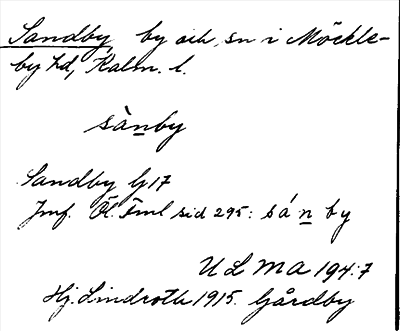 Sandby, by och sn i Möckle-
by hd, Kalm. l.
sànby
Sandby G17
Jmf. Öl. Fml sid 295: sánby
ULMA 194:7
Hj. Lindroth 1915. Gårdby